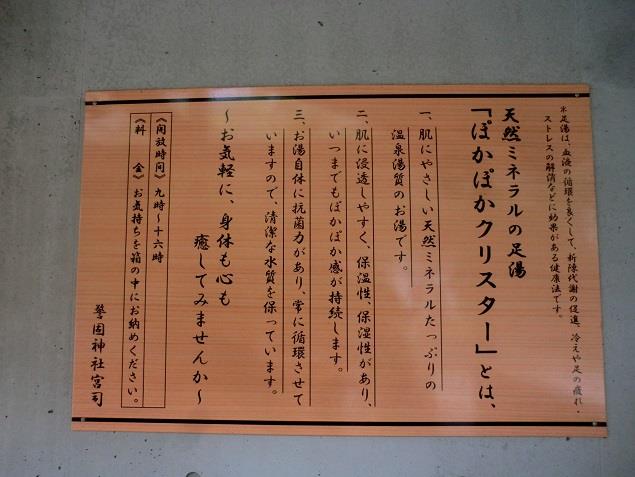 ※足湯は、血液の循環を良くして、新陳代謝の促進、冷えや足の疲れ・
ストレスの解消などに効果がある健康法です。
天然ミネラルの足湯
「ぽかぽかクリスター」とは、
一、肌にやさしい天然ミネラルたっぷりの
温泉湯質のお湯です。
二、肌に浸透しやすく、保温性、保湿性があり、
いつまでもぽかぽか感が持続します。
三、お湯自体に抗菌力があり、常に循環させて
いますので、清潔な水質を保っています。
〜お気軽に、身体も心も
癒してみませんか〜
《開放時間》九時〜十六時
《料金》お気持ちを箱の中にお納めください。
警固神社宮司